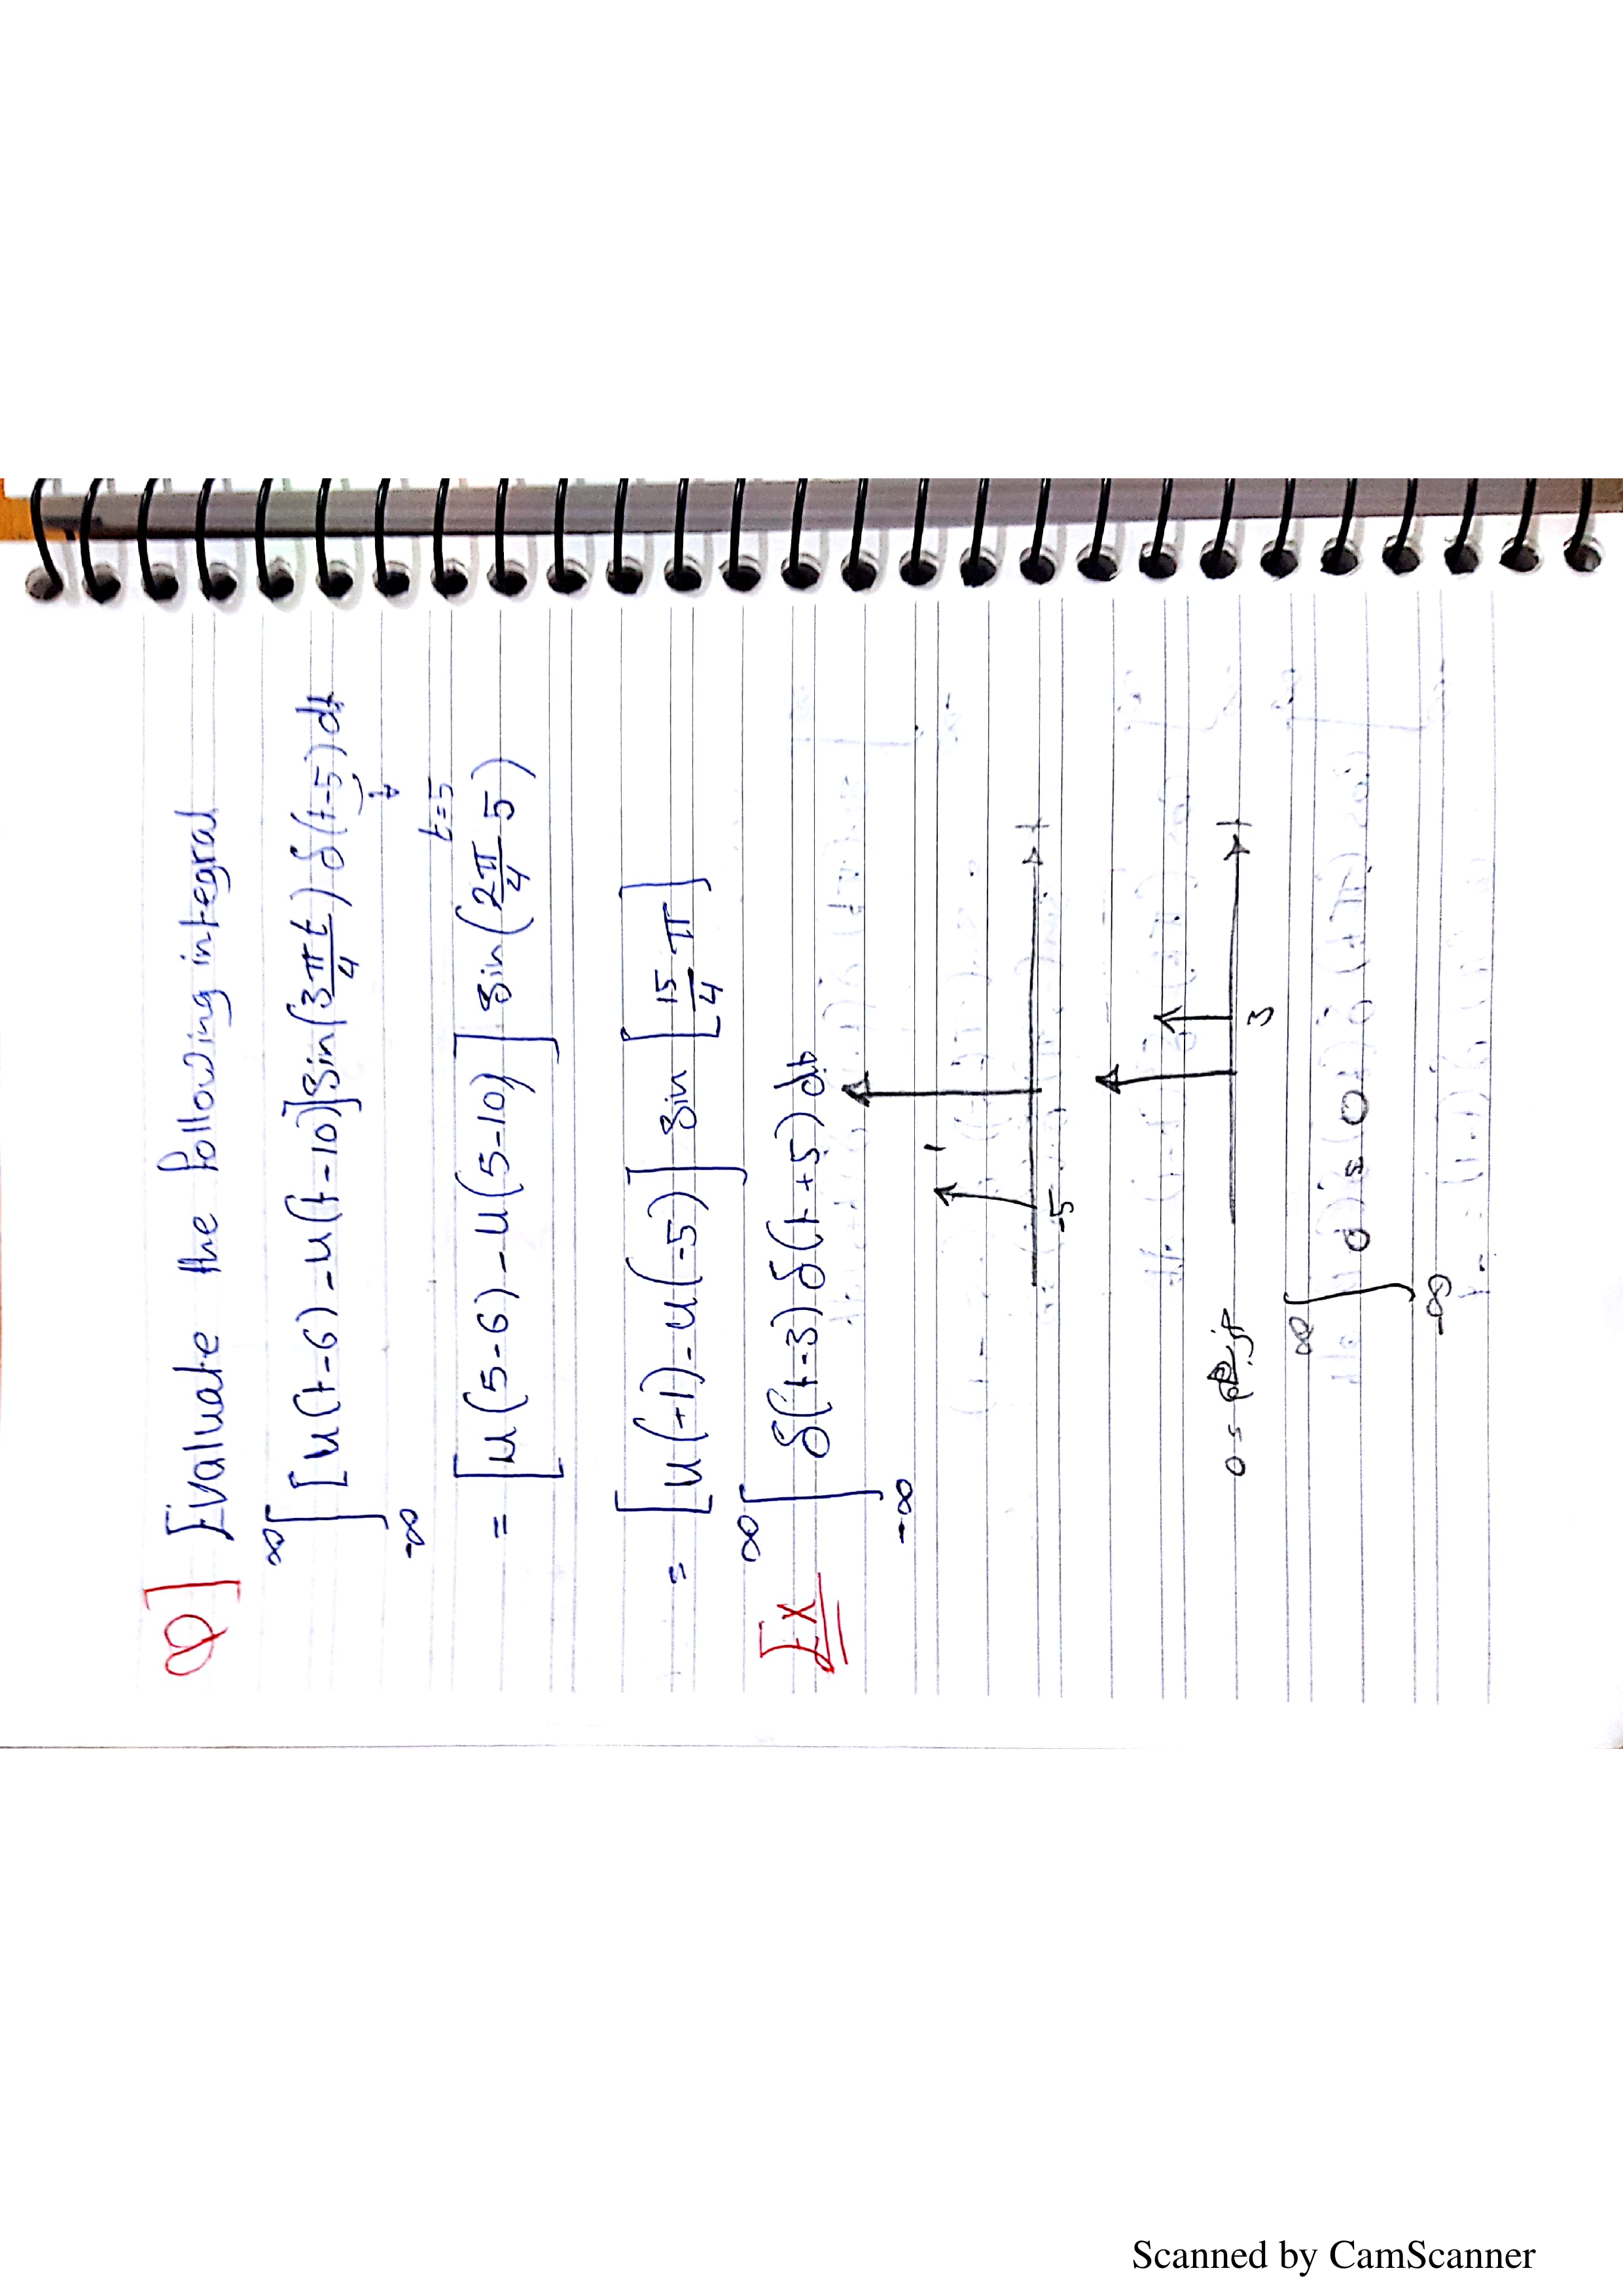 Q] Evaluate the following integral
∞∫-∞ [u(t-6) - u(t-10)] sin(3πt/4) δ(t-5) dt
t=5
= [u(5-6) - u(5-10)] sin(2π/4 5)
= [u(+1) - u(-5)] sin [15/4 π]
Ex ∞∫-∞ δ(t-3) δ(t+5) dt
1
-5 t
t
3
∞∫-∞ 0 = 0
Scanned by CamScanner